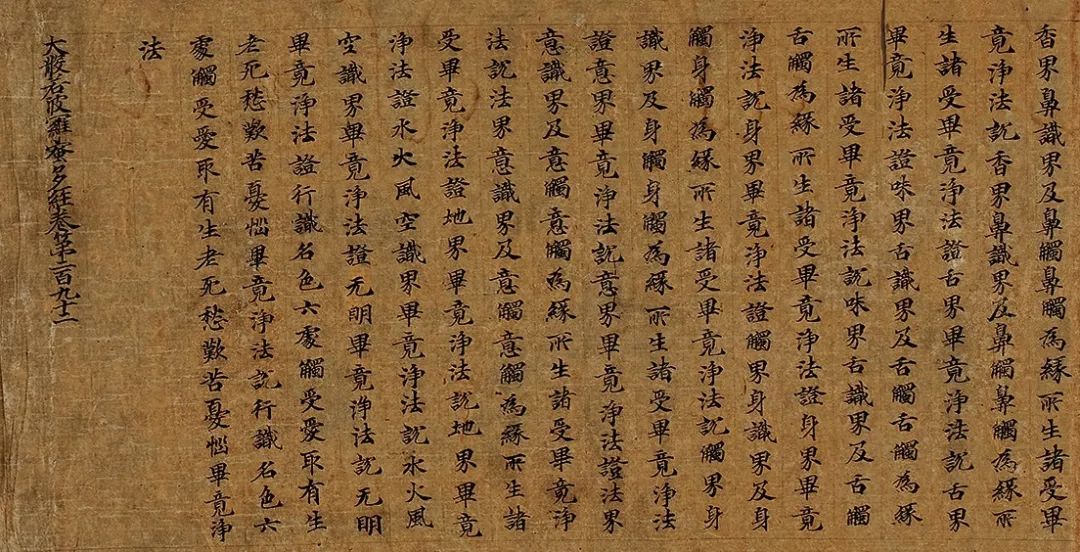 香界鼻識界及鼻觸鼻觸為緣所生諸受畢
竟浄法說香界鼻識界及鼻觸鼻觸為緣所
生諸受畢竟浄法證舌界畢竟浄法說舌界
畢竟浄法證味界舌識界及舌觸舌觸為緣
所生諸受畢竟浄法說味界舌識界及舌觸
舌觸為緣所生諸受畢竟浄法證身界畢竟
浄法說身界畢竟浄法證觸界身識界及身
觸身觸為緣所生諸受畢竟浄法說觸界身
識界及身觸身觸為緣所生諸受畢竟浄法
證意界畢竟浄法說意界畢竟浄法證法界
意識界及意觸意觸為緣所生諸受畢竟浄
法說法界意識界及意觸意觸為緣所生諸
受畢竟浄法證地界畢竟浄法說地界畢竟
浄法證水火風空識界畢竟浄法說水火風
空識界畢竟浄法證无明畢竟浄法說无明
畢竟浄法證行識名色六處觸受愛取有生
老死愁歎苦憂惱畢竟浄法說行識名色六
處觸受愛取有生老死愁歎苦憂惱畢竟浄
法
大般若波羅蜜多經卷第一百九十二